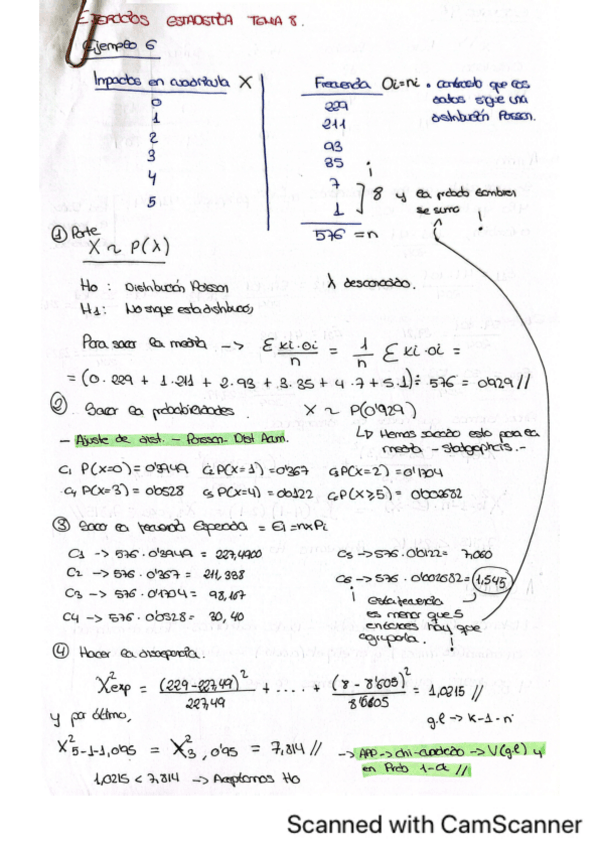 EJERCICIOS ESTADÍSTICA TEMA 8.
Ejemplo 6
Impactos en cuadrícula X
Frecuencia Oi=ni
contrasto que los datos sigue una distribución Poisson.
0 229
1 211
2 93
3 35
4 7
5 1
8 y la probab también se suma !
576 = n
① Parte
X ~ P(λ)
H0 : Distribución Poisson λ desconocida.
H1: No sigue esta distribuc,
Para sacar la media -> Σ xi·oi / n = 1/n Σ xi·oi =
= (0·229 + 1·211 + 2·93 + 3·35 + 4·7 + 5·1) ÷ 576 = 0'929 //
② Sacar la probabilidades. X ~ P(0'929)
- Ajuste de dist. - Poisson - Dist Acm.
↳ Hemos sacado esto para la media - statgraphics. -
C1 P(X=0) = 0'3949 C2 P(X=1) = 0'367 C3 P(X=2) = 0'1704
C4 P(X=3) = 0'0528 C5 P(X=4) = 0'0122 C6 P(X≥5) = 0'002682
③ Sacar la frecuencia Esperada = Ei = n×Pi
C1 -> 576 · 0'3949 = 227,4900 C5 -> 576 · 0'0122 = 7,060
C2 -> 576 · 0'367 = 211,338 C6 -> 576 · 0'002682 = 1,545
C3 -> 576 · 0'1704 = 98,167
C4 -> 576 · 0'0528 = 30,40
¡ esta frecuencia es menor que 5 entonces hay que agruparla. !
④ Hacer la discrepancia.
X²exp = (229-227,49)² / 227,49 + .... + (8 - 8'605)² / 8'605 = 1,0215 //
y por último, g.l -> K-1-n
X²5-1-1, 0'95 = X²3, 0'95 = 7,814 // -> APP -> chi-cuadrado -> V(g.l) y en Prob 1-α //
1,0215 < 7,814 -> Aceptamos H0
Scanned with CamScanner